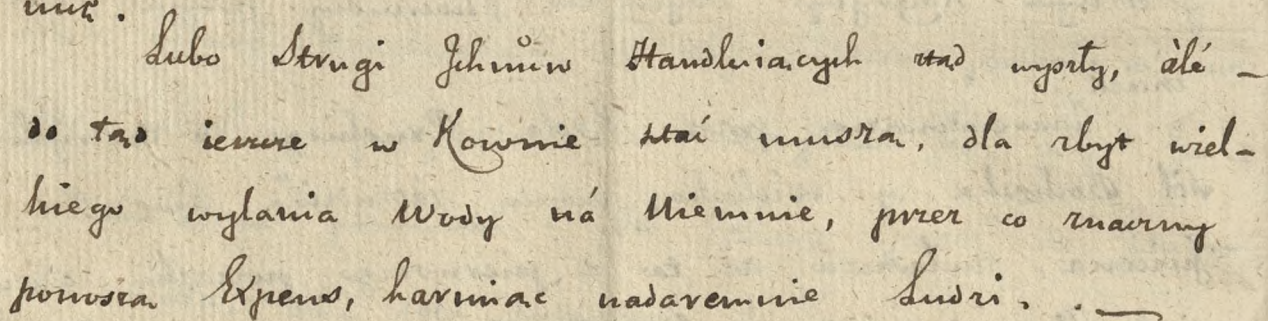 Lubo Strugi Jchmůw Handluiących ztąd wyszły, àlé –
do tąd ieszcze w Kownie stać muszą, dla zbyt wiel-
kiego wylania Wody ná Niemnie, przez co znaczny
ponoszą Expens, karmiąc nadaremnie Ludzi. . —